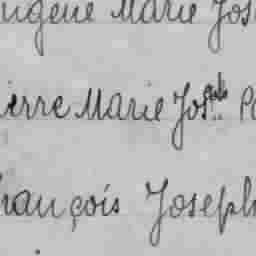 ugène Marie Jos
ierre Marie Joseph P
rançois Joseph